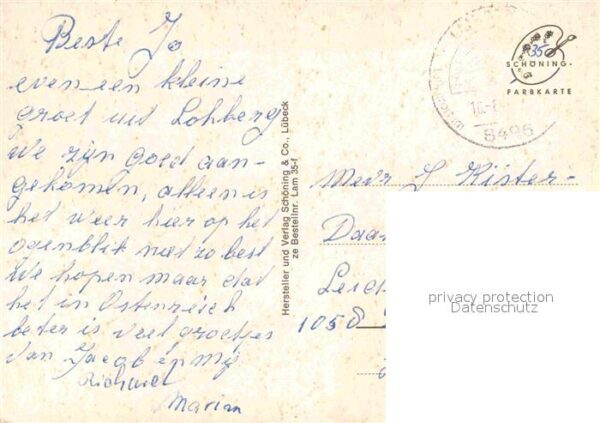 Beste Jo
even een kleine
groet uit Lohberg
We zijn goed aan-
gekomen, alleen is
het weer hier op het
ogenblik niet zo best
We hopen maar dat
het in Ostenreich
beter is veel groetjes
van Jacob en mij
Marian
Hersteller und Verlag Schöning & Co., Lübeck
ze Bestellnr. Lam 35-f
8496
35
SCHÖNING-
FARBKARTE
Mevr L Küster-
Daa
1058
privacy protection
Datenschutz